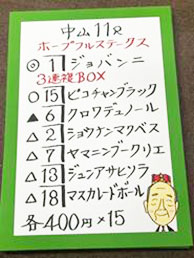 中山11R
ホープフルステークス
◎1 ジョバンニ
3連複BOX
○15 ピコチャンブラック
▲6 クロワデュノール
△2 ショウナンマクベス
△7 ヤマニンブークリエ
△13 ジュンアサヒソラ
△18 マスカレードボール
各400円×15